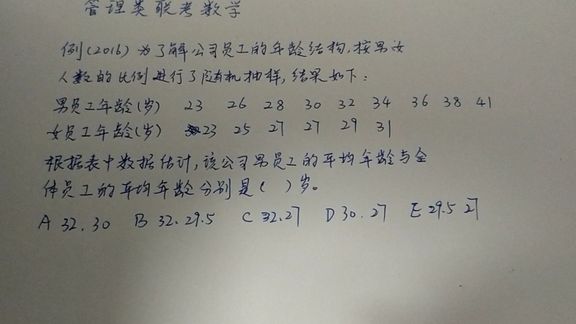 管理类联考数学
例(2016) 为了解公司员工的年龄结构,按男女
人数的比例进行了随机抽样,结果如下:
男员工年龄(岁) 23 26 28 30 32 34 36 38 41
女员工年龄(岁) 23 25 27 27 29 31
根据表中数据估计,该公司男员工的平均年龄与全
体员工的平均年龄分别是( )岁。
A 32.30 B 32.29.5 C 32.27 D 30.27 E 29.5 27